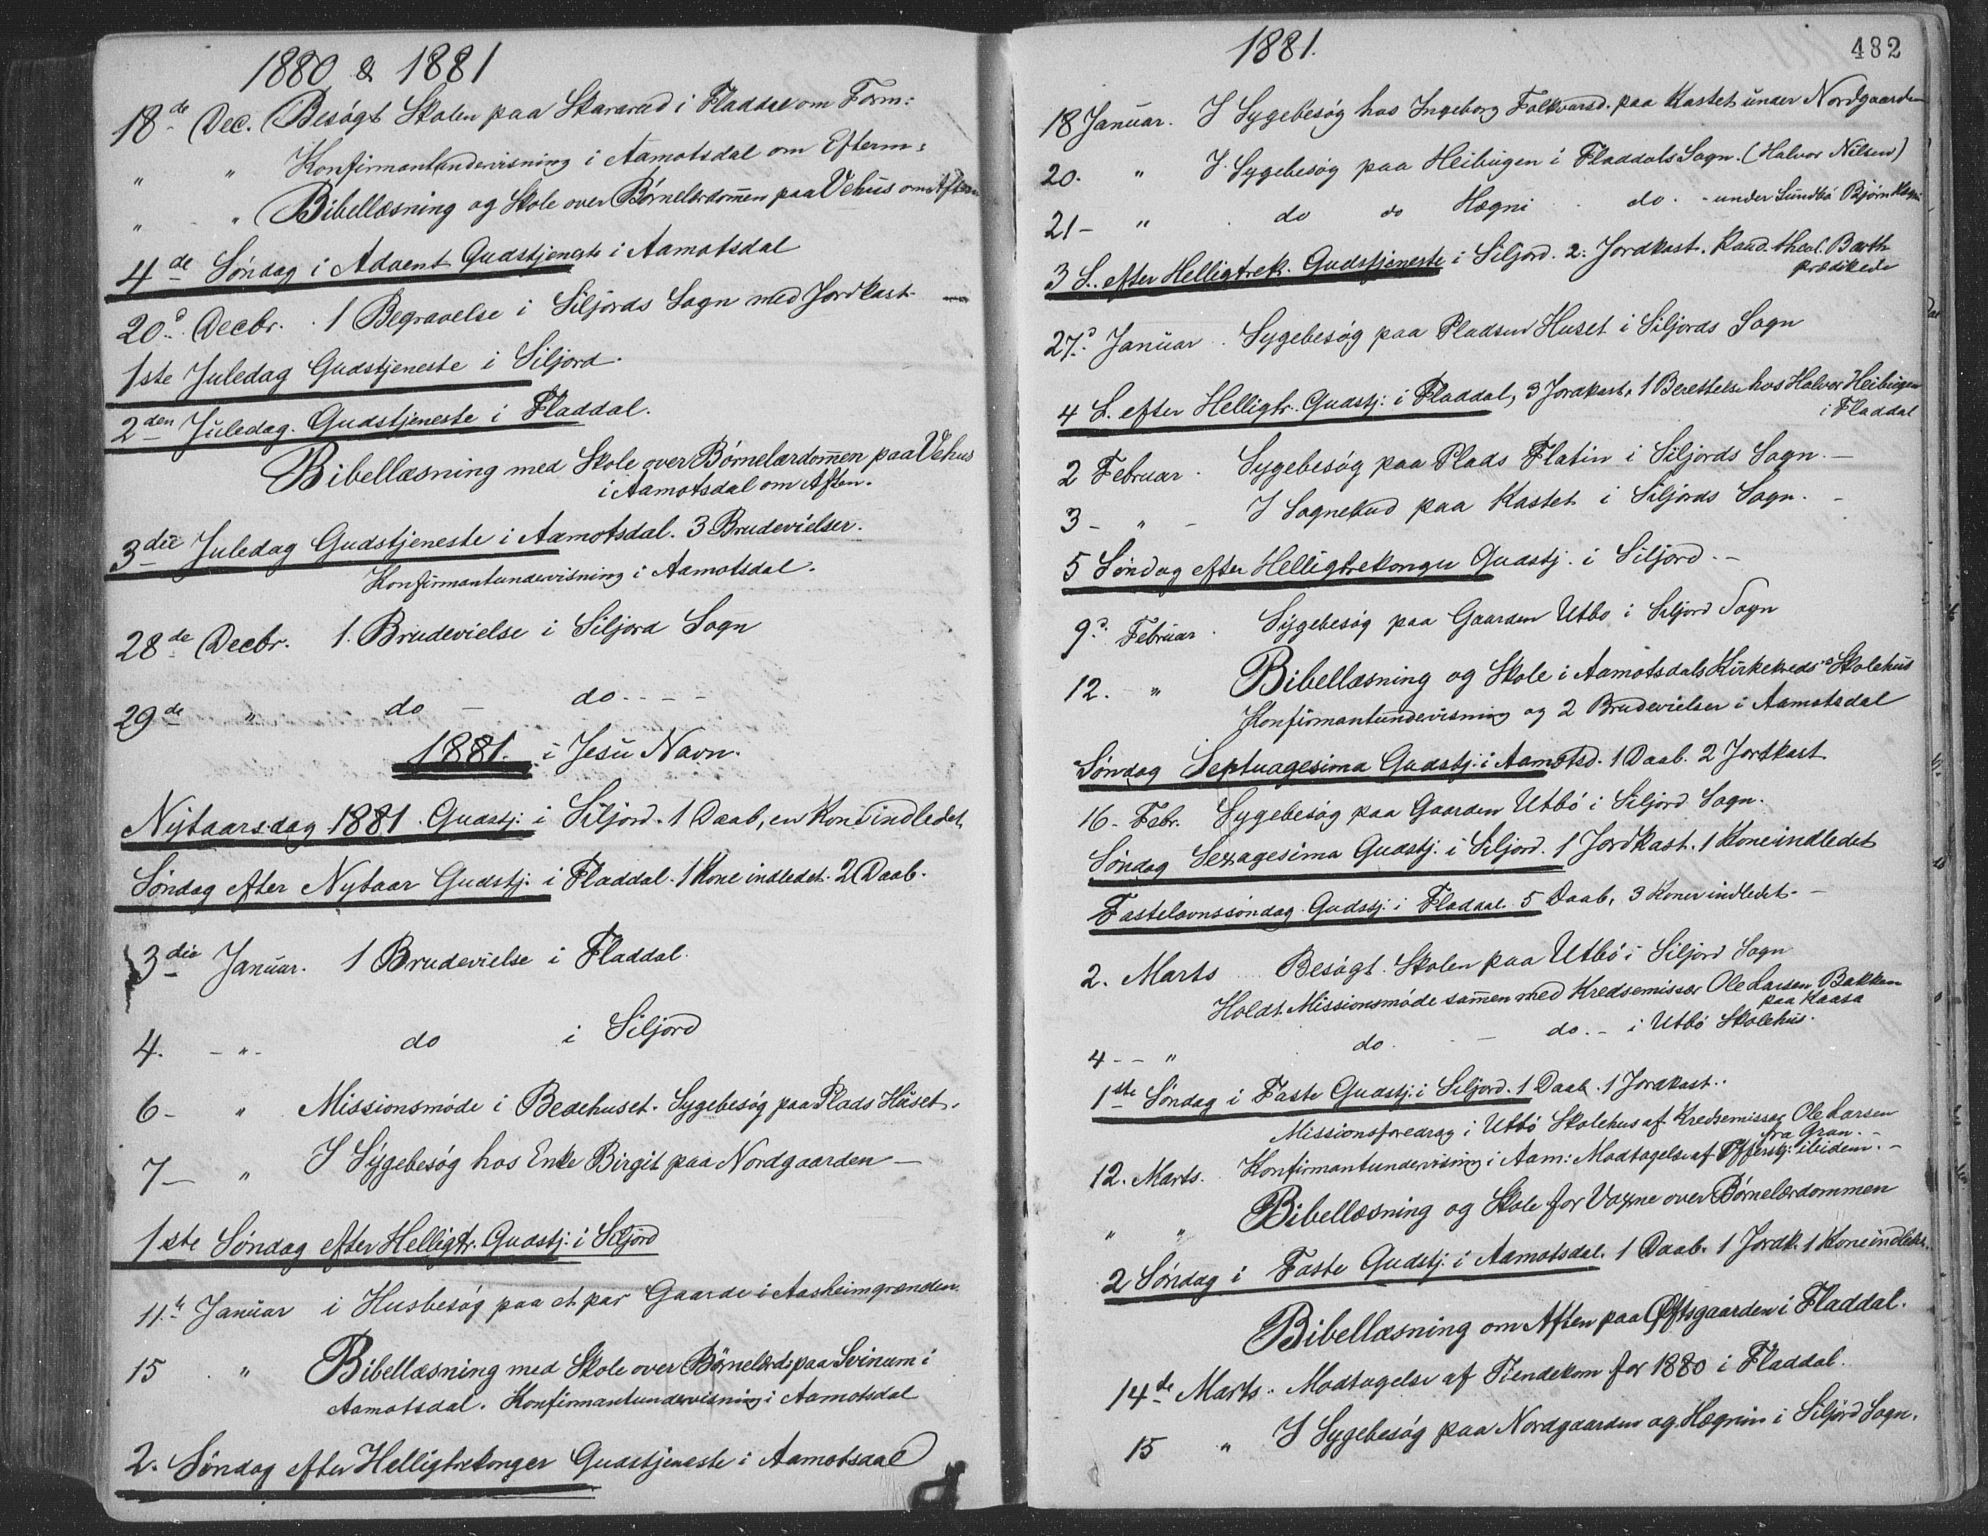 1880 & 1881
18de Dec. Besøgt Skolen paa Skararud i Fladdal om Form:
" " Konfirmantundervisning i Aamotsdal om Efterm:
" " Bibellæsning og Skole over Børnelærdom̄en paa Vehus om Aften
4de Søndag i Advent Gudstjeneste i Aamotsdal
20d. Decbr. 1 Begravelse i Siljords Sogn med Jordkast
1ste Juledag Gudstjeneste i Siljord.
2den Juledag. Gudstjeneste i Fladdal.
Bibellæsning med Skole over Børnelærdom̄en paa Vehus
i Aamotsdal om Aften.
3die Juledag Gudstjeneste i Aamotsdal. 3 Brudevielser.
Konfirmantundervisning i Aamotsdal.
28de Decbr. 1. Brudevielse i Siljord Sogn
29de " do - do - - -
1881. i Jesu Navn.
Nytaarsdag 1881. Gudstj: i Siljord. 1 Daab, en Kone indledet
Søndag efter Nytaar Gudstj: i Fladdal. 1 Kone indledet. 2 Daab.
3die Januar. 1 Brudevielse i Fladdal.
4. - " - do i Siljord
6 - " Missionsmøde i Bedehuset. Sygebesøg paa Plads Huset.
7 - " I Sygebesøg hos Enke Birgit paa Nordgaarden -
1ste Søndag efter Helligtr. Gudstj: i Siljord
11te Januar i Husbesøg paa et par Gaarde i Aasheimgrænden.
15 " Bibellæsning med Skole over Børnelærd: paa Svinum i
Aamotsdal. Konfirmantundervisning i Aamotsdal
2. Søndag efter Helligtrekonger Gudstjeneste i Aamotsdal
1881.
482
18 Januar. I Sygebesøg hos Ingeborg Folkvarsd. paa Kastet under Nordgaarden
20. " I Sygebesøg paa Heibugen i Fladdals Sogn. (Halvor Nilsen)
21 - " do do Hægni do. - under Sundbø Bjørn
3 S. efter Helligtrek. Gudstjeneste i Siljord. 2. Jordkast. Kand. theol. Barth
prædikede
27d. Januar. Sygebesøg paa Pladsen Huset i Siljords Sogn
4 S. efter Helligtr. Gudstj: i Fladdal, 3 Jordkast, 1 Berettelse hos Halvor Heibugen
i Fladdal
2 Februar. Sygebesøg paa Plads Flatin i Siljords Sogn. -
3 - " - I Sognebud paa Kastet i Siljords Sogn. -
5 Søndag efter Helligtrekonger Gudstj. i Siljord. -
9d. Februar. Sygebesøg paa Gaarden Utbø i Siljord Sogn
12. - " Bibellæsning og Skole i Aamotsdals Kirkekreds's Skolehus
Konfirmantundervisning og 2 Brudevielser i Aamotsdal
Søndag Septuagesima Gudstj: i Aamotsd. 1 Daab. 2 Jordkast
16. Febr. Sygebesøg paa Gaarden Utbø i Siljord Sogn.
Søndag Sexagesima Gudstj. i Siljord. 1 Jordkast. 1 Kone indledet
Fastelavnssøndag. Gudstj: i Fladdal. 5 Daab, 3 Koner indledet. -
2. Marts Besøgt Skolen paa Utbø i Siljord Sogn
Holdt Missionsmøde sam̄en med Kredsemissær Ole Larsen Bakken
paa Kaasa
4 - - " do. - do. - i Utbø Skolehus.
1ste Søndag i Faste Gudstj: i Siljord. 1 Daab. 1 Jordkast..
Missionsforedrag i Utbø Skolehus af Kredsemissær Ole Larsen
fra Gran. -
12. Marts. Konfirmantundervisning i Aam: Modtagelse af Offerskj: ibidem. -
" " Bibellæsning og Skole for Voxne over Børnelærdommen
2 Søndag i Faste Gudstj. i Aamotsdal. 1 Daab. 1 Jordk. 1 Kone indledet.
Bibellæsning om Aften paa Øftsgaarden i Fladdal.
14de Marts. Modtagelse af Tiendekorn for 1880 i Fladdal.
15 " I Sygebesøg paa Nordgaarden og Hægnin i Siljord Sogn.